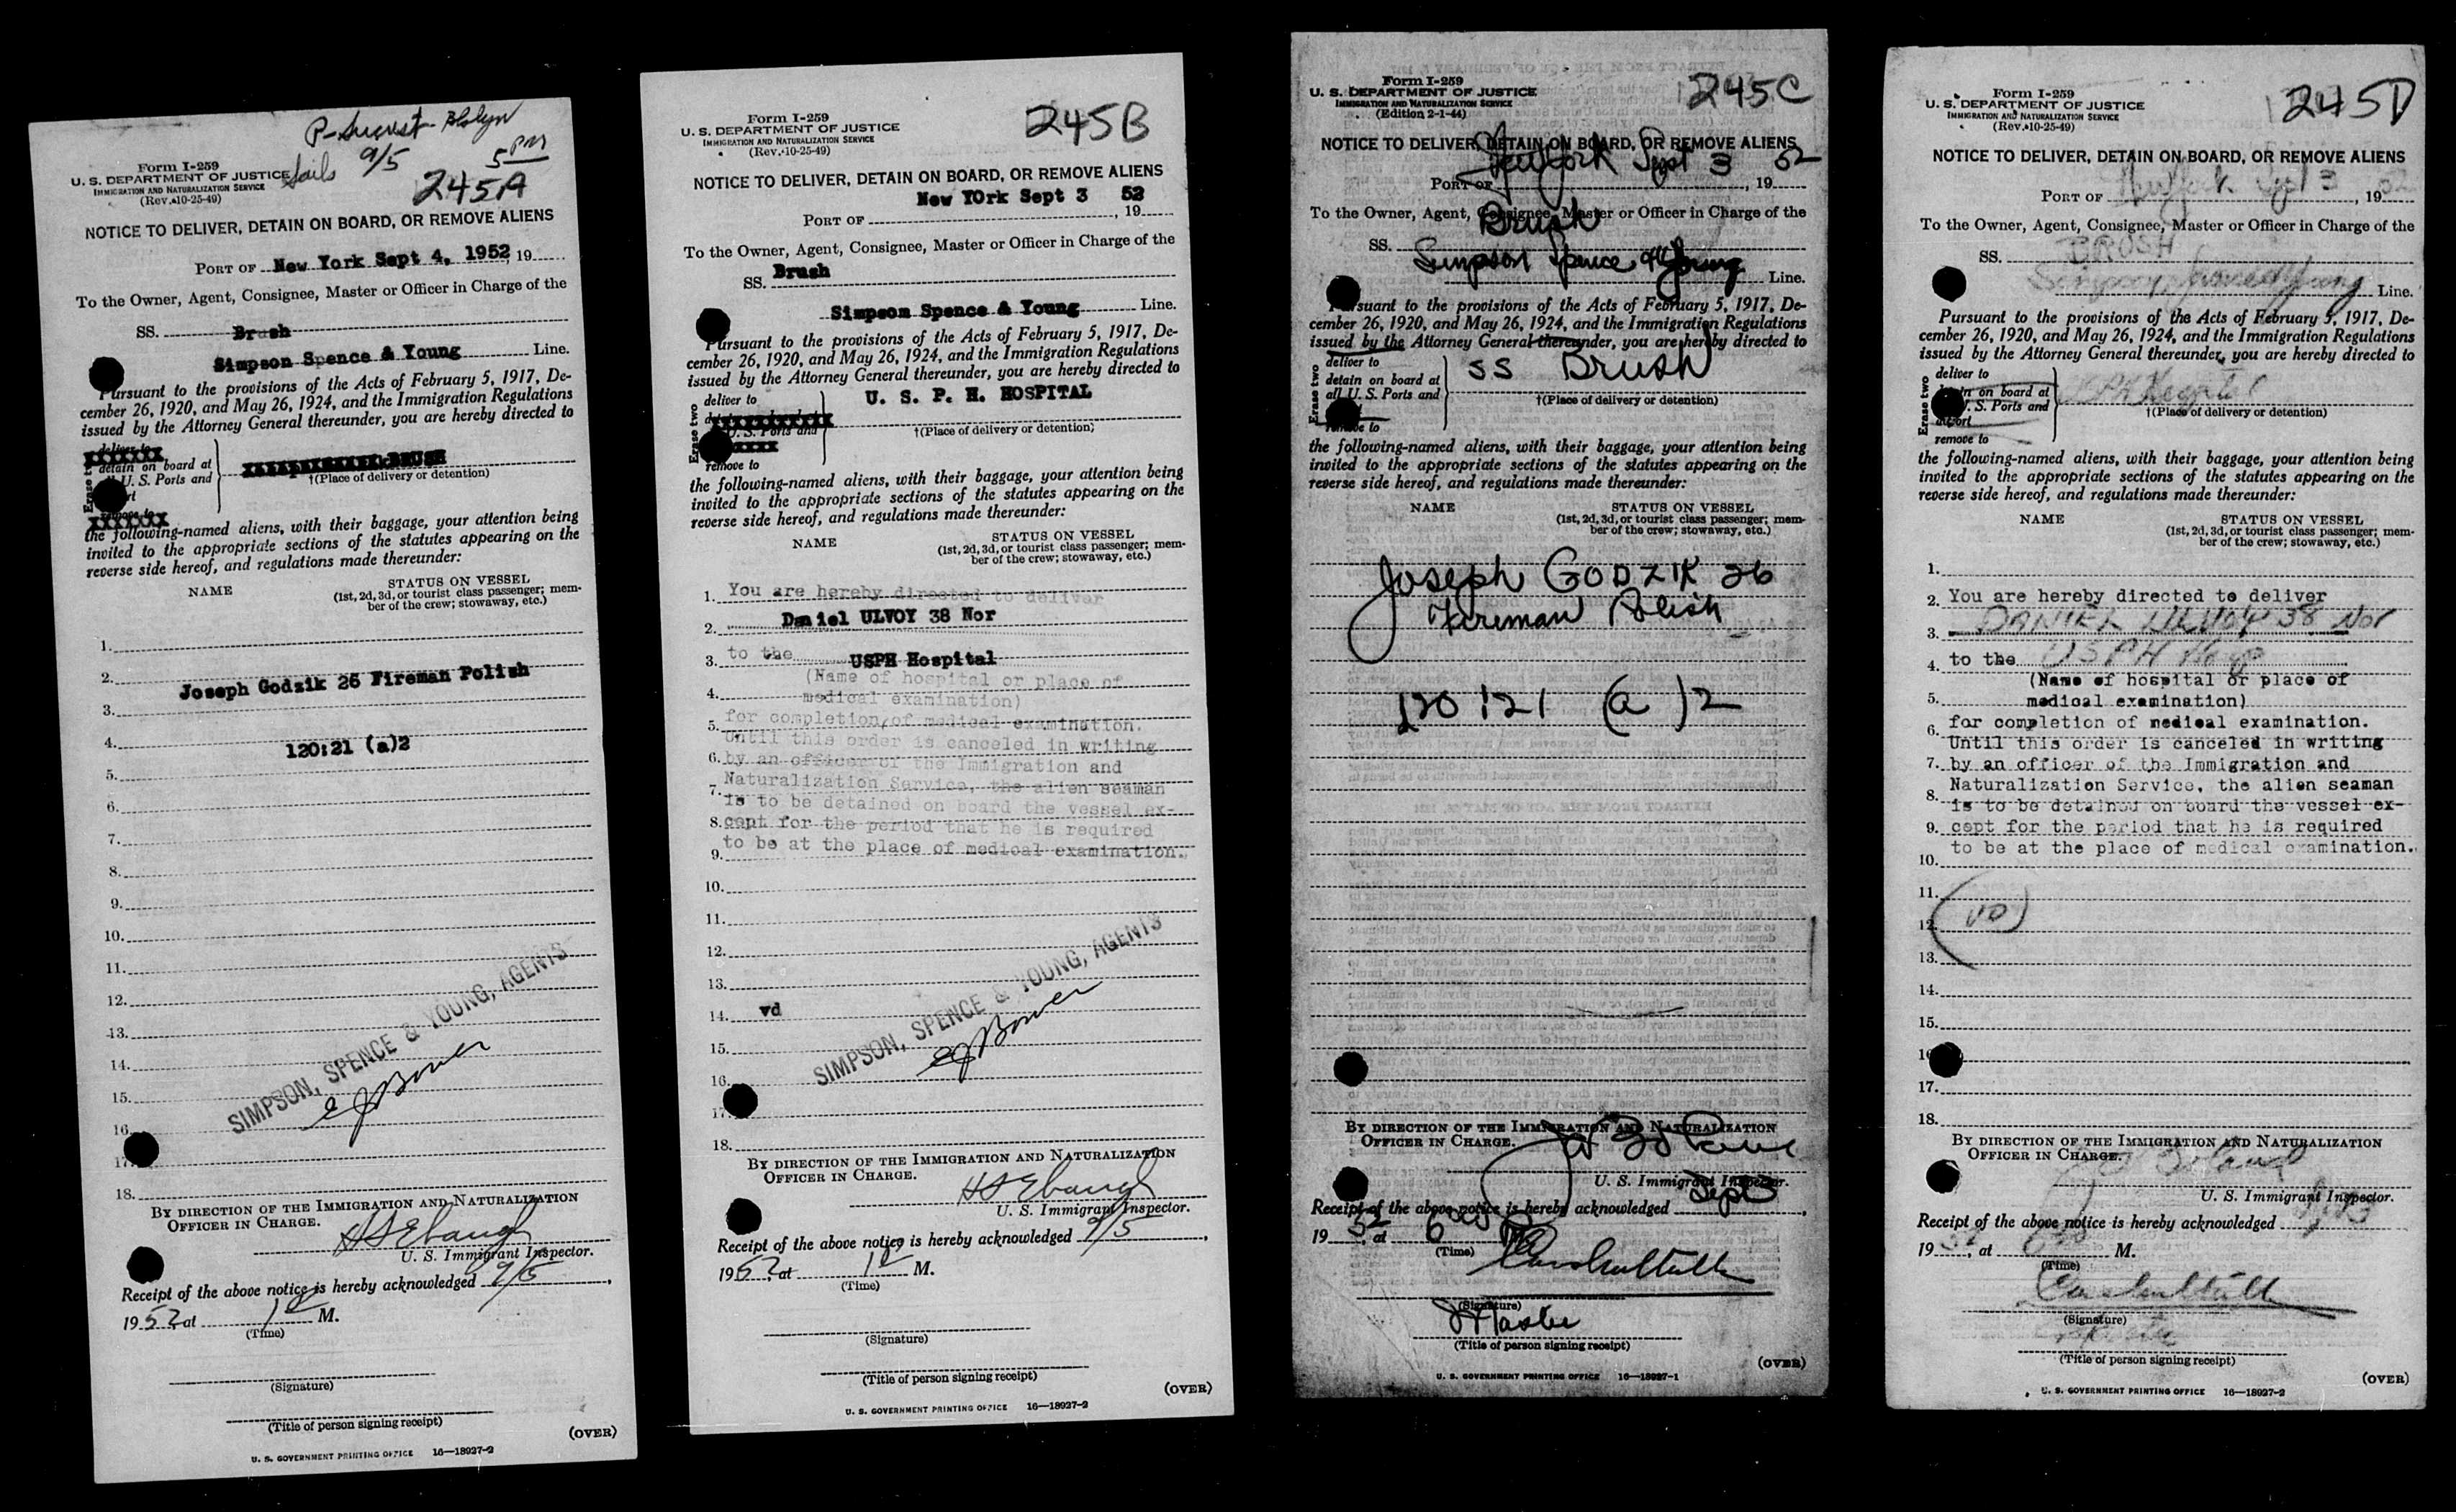 P- Bklyn
Sails 9/5 5 PM
245A
Form I-259
U. S. DEPARTMENT OF JUSTICE
IMMIGRATION AND NATURALIZATION SERVICE
(Rev. 10-25-49)
NOTICE TO DELIVER, DETAIN ON BOARD, OR REMOVE ALIENS
PORT OF New York Sept 4, 1952, 19
To the Owner, Agent, Consignee, Master or Officer in Charge of the
SS. Brush
Simpson Spence & Young Line.
Pursuant to the provisions of the Acts of February 5, 1917, De-
cember 26, 1920, and May 26, 1924, and the Immigration Regulations
issued by the Attorney General thereunder, you are hereby directed to
deliver to
detain on board at
U. S. Ports and
BRUSH
†(Place of delivery or detention)
remove to
the following-named aliens, with their baggage, your attention being
invited to the appropriate sections of the statutes appearing on the
reverse side hereof, and regulations made thereunder:
NAME STATUS ON VESSEL
(1st, 2d, 3d, or tourist class passenger; mem-
ber of the crew; stowaway, etc.)
1.
2.
Joseph Godzik 26 Fireman Polish
3.
4. 120:21 (a)2
5.
6.
7.
8.
9.
10.
11.
12.
13.
14.
15.
16.
17.
18.
SIMPSON, SPENCE & YOUNG, AGENTS
E J Bower
BY DIRECTION OF THE IMMIGRATION AND NATURALIZATION
OFFICER IN CHARGE.
H S Ebaugh
U. S. Immigrant Inspector.
Receipt of the above notice is hereby acknowledged 9/5,
1952, at M.
(Time)
(Signature)
(Title of person signing receipt)
(OVER)
U. S. GOVERNMENT PRINTING OFFICE 16—18927-2
245B
Form I-259
U. S. DEPARTMENT OF JUSTICE
IMMIGRATION AND NATURALIZATION SERVICE
(Rev. 10-25-49)
NOTICE TO DELIVER, DETAIN ON BOARD, OR REMOVE ALIENS
PORT OF New YOrk Sept 3, 1952
To the Owner, Agent, Consignee, Master or Officer in Charge of the
SS. Brush
Simpson Spence & Young Line.
Pursuant to the provisions of the Acts of February 5, 1917, De-
cember 26, 1920, and May 26, 1924, and the Immigration Regulations
issued by the Attorney General thereunder, you are hereby directed to
Erase two
deliver to
U. S. Ports and
U. S. P. H. HOSPITAL
†(Place of delivery or detention)
remove to
the following-named aliens, with their baggage, your attention being
invited to the appropriate sections of the statutes appearing on the
reverse side hereof, and regulations made thereunder:
NAME STATUS ON VESSEL
(1st, 2d, 3d, or tourist class passenger; mem-
ber of the crew; stowaway, etc.)
1. You are hereby directed to deliver
2. Daniel ULVOY 38 Nor
3. to the USPH Hospital
(Name of hospital or place of
4. medical examination)
5. for completion of medical examination.
Until this order is canceled in writing
6. by an officer of the Immigration and
Naturalization Service, the alien seaman
7. is to be detained on board the vessel ex-
8. cept for the period that he is required
9. to be at the place of medical examination.
10.
11.
12.
13.
14. vd
15.
16.
17.
18.
SIMPSON, SPENCE & YOUNG, AGENTS
E J Bower
BY DIRECTION OF THE IMMIGRATION AND NATURALIZATION
OFFICER IN CHARGE.
H S Ebaugh
U. S. Immigrant Inspector.
Receipt of the above notice is hereby acknowledged 9/5,
1952, at M.
(Time)
(Signature)
(Title of person signing receipt)
(OVER)
U. S. GOVERNMENT PRINTING OFFICE 16—18927-2
245C
Form I-259
U. S. DEPARTMENT OF JUSTICE
IMMIGRATION AND NATURALIZATION SERVICE
(Edition 2-1-44)
NOTICE TO DELIVER, DETAIN ON BOARD, OR REMOVE ALIENS
PORT OF New York Sept 3, 1952
To the Owner, Agent, Consignee, Master or Officer in Charge of the
SS. Brush
Simpson Spence & Young Line.
Pursuant to the provisions of the Acts of February 5, 1917, De-
cember 26, 1920, and May 26, 1924, and the Immigration Regulations
issued by the Attorney General thereunder, you are hereby directed to
Erase two
deliver to
detain on board at
all U. S. Ports and
SS Brush
†(Place of delivery or detention)
remove to
the following-named aliens, with their baggage, your attention being
invited to the appropriate sections of the statutes appearing on the
reverse side hereof, and regulations made thereunder:
NAME STATUS ON VESSEL
(1st, 2d, 3d, or tourist class passenger; mem-
ber of the crew; stowaway, etc.)
Joseph GODZIK 26
Fireman Polish
120:21 (a)2
BY DIRECTION OF THE IMMIGRATION AND NATURALIZATION
OFFICER IN CHARGE.
U. S. Immigrant Inspector.
Receipt of the above notice is hereby acknowledged Sept 3,
1952, at 6
(Time)
(Signature)
Master
(Title of person signing receipt)
(OVER)
U. S. GOVERNMENT PRINTING OFFICE 16—18927-1
245D
Form I-259
U. S. DEPARTMENT OF JUSTICE
IMMIGRATION AND NATURALIZATION SERVICE
(Rev. 10-25-49)
NOTICE TO DELIVER, DETAIN ON BOARD, OR REMOVE ALIENS
PORT OF New York Sept 3, 1952
To the Owner, Agent, Consignee, Master or Officer in Charge of the
SS. BRUSH
Simpson, Young Line.
Pursuant to the provisions of the Acts of February 5, 1917, De-
cember 26, 1920, and May 26, 1924, and the Immigration Regulations
issued by the Attorney General thereunder, you are hereby directed to
Erase two
deliver to
on board at
U. S. Ports and
airport
USPH Hospital
†(Place of delivery or detention)
remove to
the following-named aliens, with their baggage, your attention being
invited to the appropriate sections of the statutes appearing on the
reverse side hereof, and regulations made thereunder:
NAME STATUS ON VESSEL
(1st, 2d, 3d, or tourist class passenger; mem-
ber of the crew; stowaway, etc.)
1.
2. You are hereby directed to deliver
3. DANIEL ULVOY 38 Nor
4. to the USPH Hosp
(Name of hospital or place of
5. medical examination)
6. for completion of medical examination.
Until this order is canceled in writing
7. by an officer of the Immigration and
Naturalization Service, the alien seaman
8. is to be detained on board the vessel ex-
9. cept for the period that he is required
to be at the place of medical examination.
10.
11.
12. (VD)
13.
14.
15.
16.
17.
18.
BY DIRECTION OF THE IMMIGRATION AND NATURALIZATION
OFFICER IN CHARGE.
U. S. Immigrant Inspector.
Receipt of the above notice is hereby acknowledged
1952, at 6 M.
(Time)
(Signature)
(Title of person signing receipt)
(OVER)
U. S. GOVERNMENT PRINTING OFFICE 16—18927-2